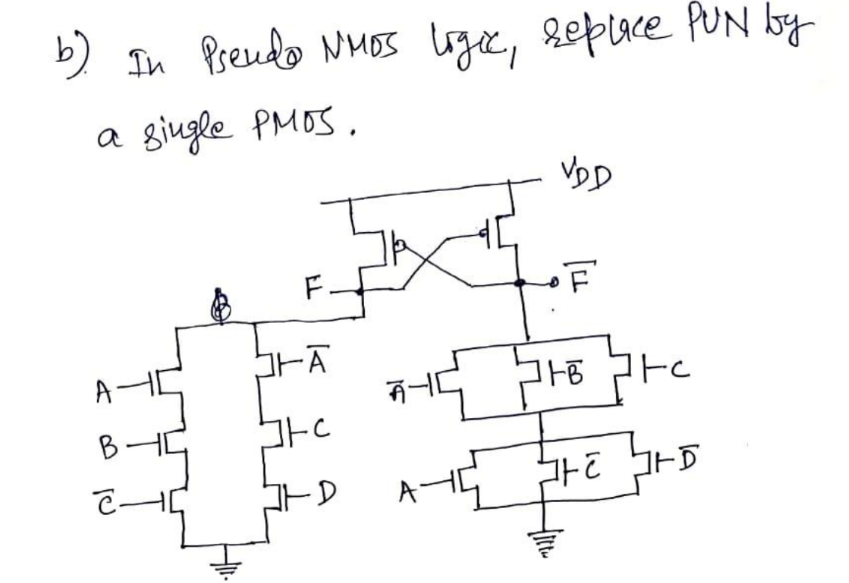 b) In Pseudo NMOS logic, replace PUN by
a single PMOS.
VDD
F
F̅
A
A̅
A̅
B̅
C
B
C
C̅
D
A
C̅
D̅